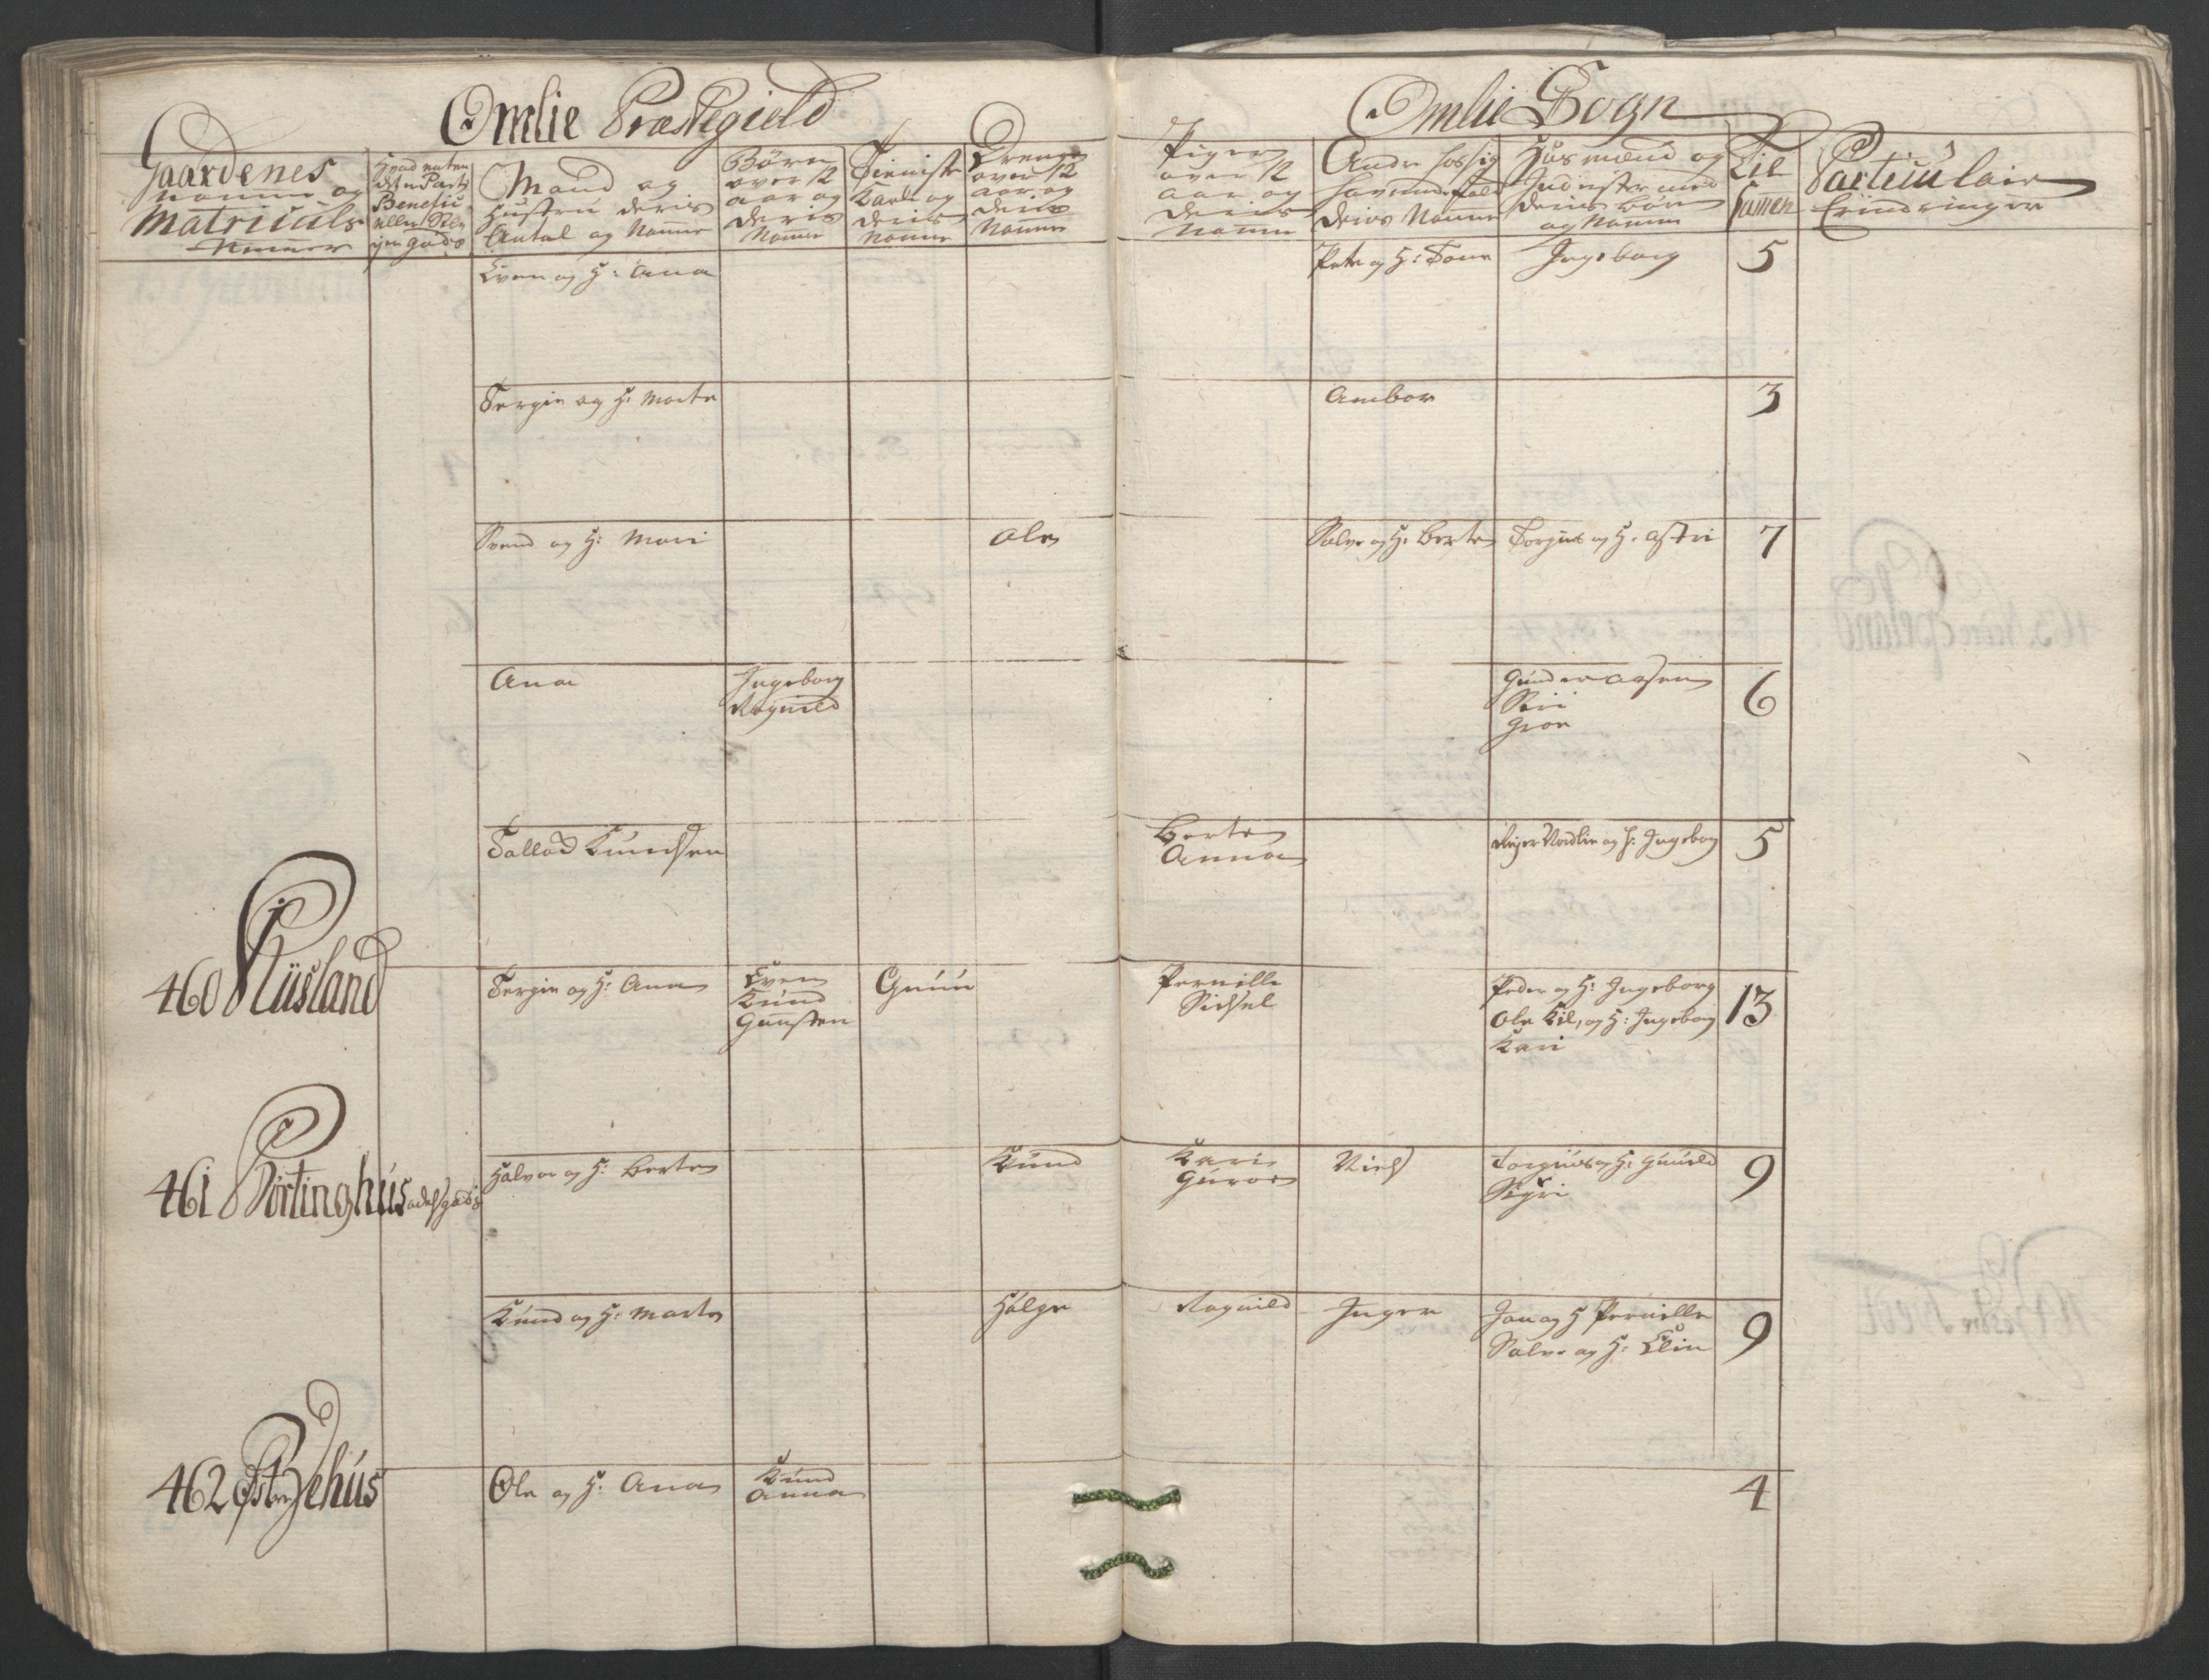 Omlie Præstegield
Omlie Sogn
Gaardenes
Nafne og
Matriculs
Hvad enten
det er Part.
Benefic:
eller
gods
Mand og
Hustru deris
Antal og Nafne
Børn
over 12
aar og
deris
Nafne
Tienniste
Karle og
deris
Nafne
Drenge
over 12
aar og
deris
Nafne
Piger
over 12
aar og
deris
Nafne
Andre hos sig
havende Folk
deris Nafne
Husmænd og
Inderster med
deris Børn
og Nafne
Til
samen
Particulair
Erindringer
Even og H: Ana
Peter og H: Tone
Ingeborg
5
Tergie og H: Marte
Ambor
3
Svend og H: Mari
Ole
Salve og H: Berte
Torgius og H: Astri
7
Ana
Ingeborg
Ragnild
Gunder Aasen
Siri
Groe
6
Tallad Knudsen
Berte
Anna
Reier Nordlie og H: Ingeborg
5
460 Rüsland
Tergie og H: Ana
Even
Knud
Gunsten
Gunn
Pernille
Sidsel
Peder og H: Ingeborg
Ole Kil, og H: Ingeborg
Kari
13
461 Børtinghus adelsgods
Halvor og H: Berte
Knud
Kari
Guroe
Niels
Torgius og H: Gunild
Sigri
9
Knud og H: Marte
Helge
Ragnild
Inger
Jon og H Pernille
Salve og H: Elin
9
462 Østre Jehus
Ole og H: Ana
Knud
Anna
4